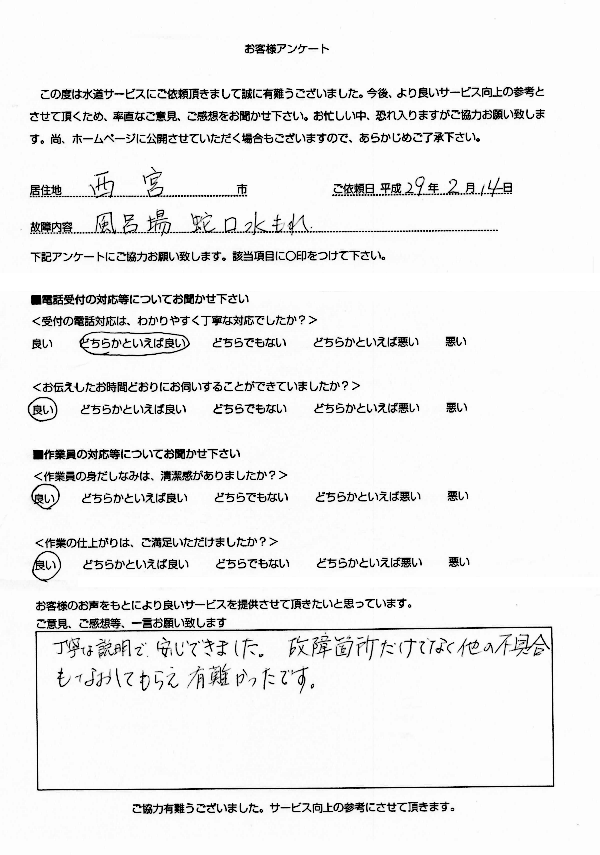 お客様アンケート
この度は水道サービスにご依頼頂きまして誠に有難うございました。今後、より良いサービス向上の参考と
させて頂くため、率直なご意見、ご感想をお聞かせ下さい。お忙しい中、恐れ入りますがご協力お願い致しま
す。尚、ホームページに公開させていただく場合もございますので、あらかじめご了承下さい。
居住地 西宮 市 ご依頼日 平成 29 年 2 月 14 日
故障内容 風呂場 蛇口水もれ
下記アンケートにご協力お願い致します。該当項目に〇印をつけて下さい。
■電話受付の対応等についてお聞かせ下さい
<受付の電話対応は、わかりやすく丁寧な対応でしたか?>
良い どちらかといえば良い どちらでもない どちらかといえば悪い 悪い
<お伝えしたお時間どおりにお伺いすることができていましたか?>
良い どちらかといえば良い どちらでもない どちらかといえば悪い 悪い
■作業員の対応等についてお聞かせ下さい
<作業員の身だしなみは、清潔感がありましたか?>
良い どちらかといえば良い どちらでもない どちらかといえば悪い 悪い
<作業の仕上がりは、ご満足いただけましたか?>
良い どちらかといえば良い どちらでもない どちらかといえば悪い 悪い
お客様のお声をもとにより良いサービスを提供させて頂きたいと思っています。
ご意見、ご感想等、一言お願い致します
丁寧な説明で、安心できました。故障箇所だけでなく他の不具合
もなおしてもらえ有難かったです。
ご協力有難うございました。サービス向上の参考にさせて頂きます。